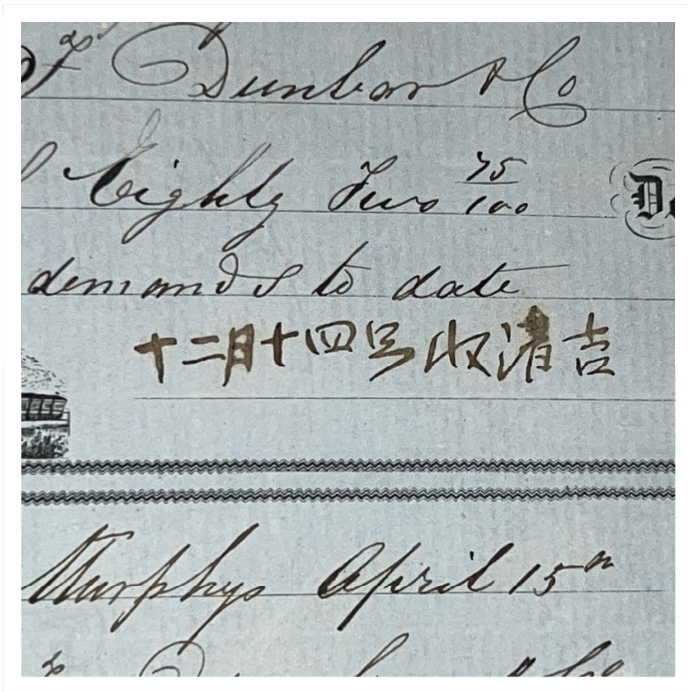 F Dunbar & Co
Eighty Two 75/100
demands to date
十二月十四号收清吉
Murphys April 15th